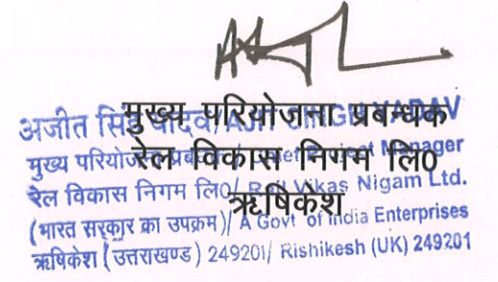 मुख्य परियोजना प्रबन्धक
रेल विकास निगम लि0
ऋषिकेश
अजीत सिंह यादव/AJIT SINGH YADAV
मुख्य परियोजना प्रबंधक/Chief Project Manager
रेल विकास निगम लि0/Rail Vikas Nigam Ltd.
(भारत सरकार का उपक्रम)/ A Govt of India Enterprises
ऋषिकेश (उत्तराखण्ड) 249201/ Rishikesh (UK) 249201